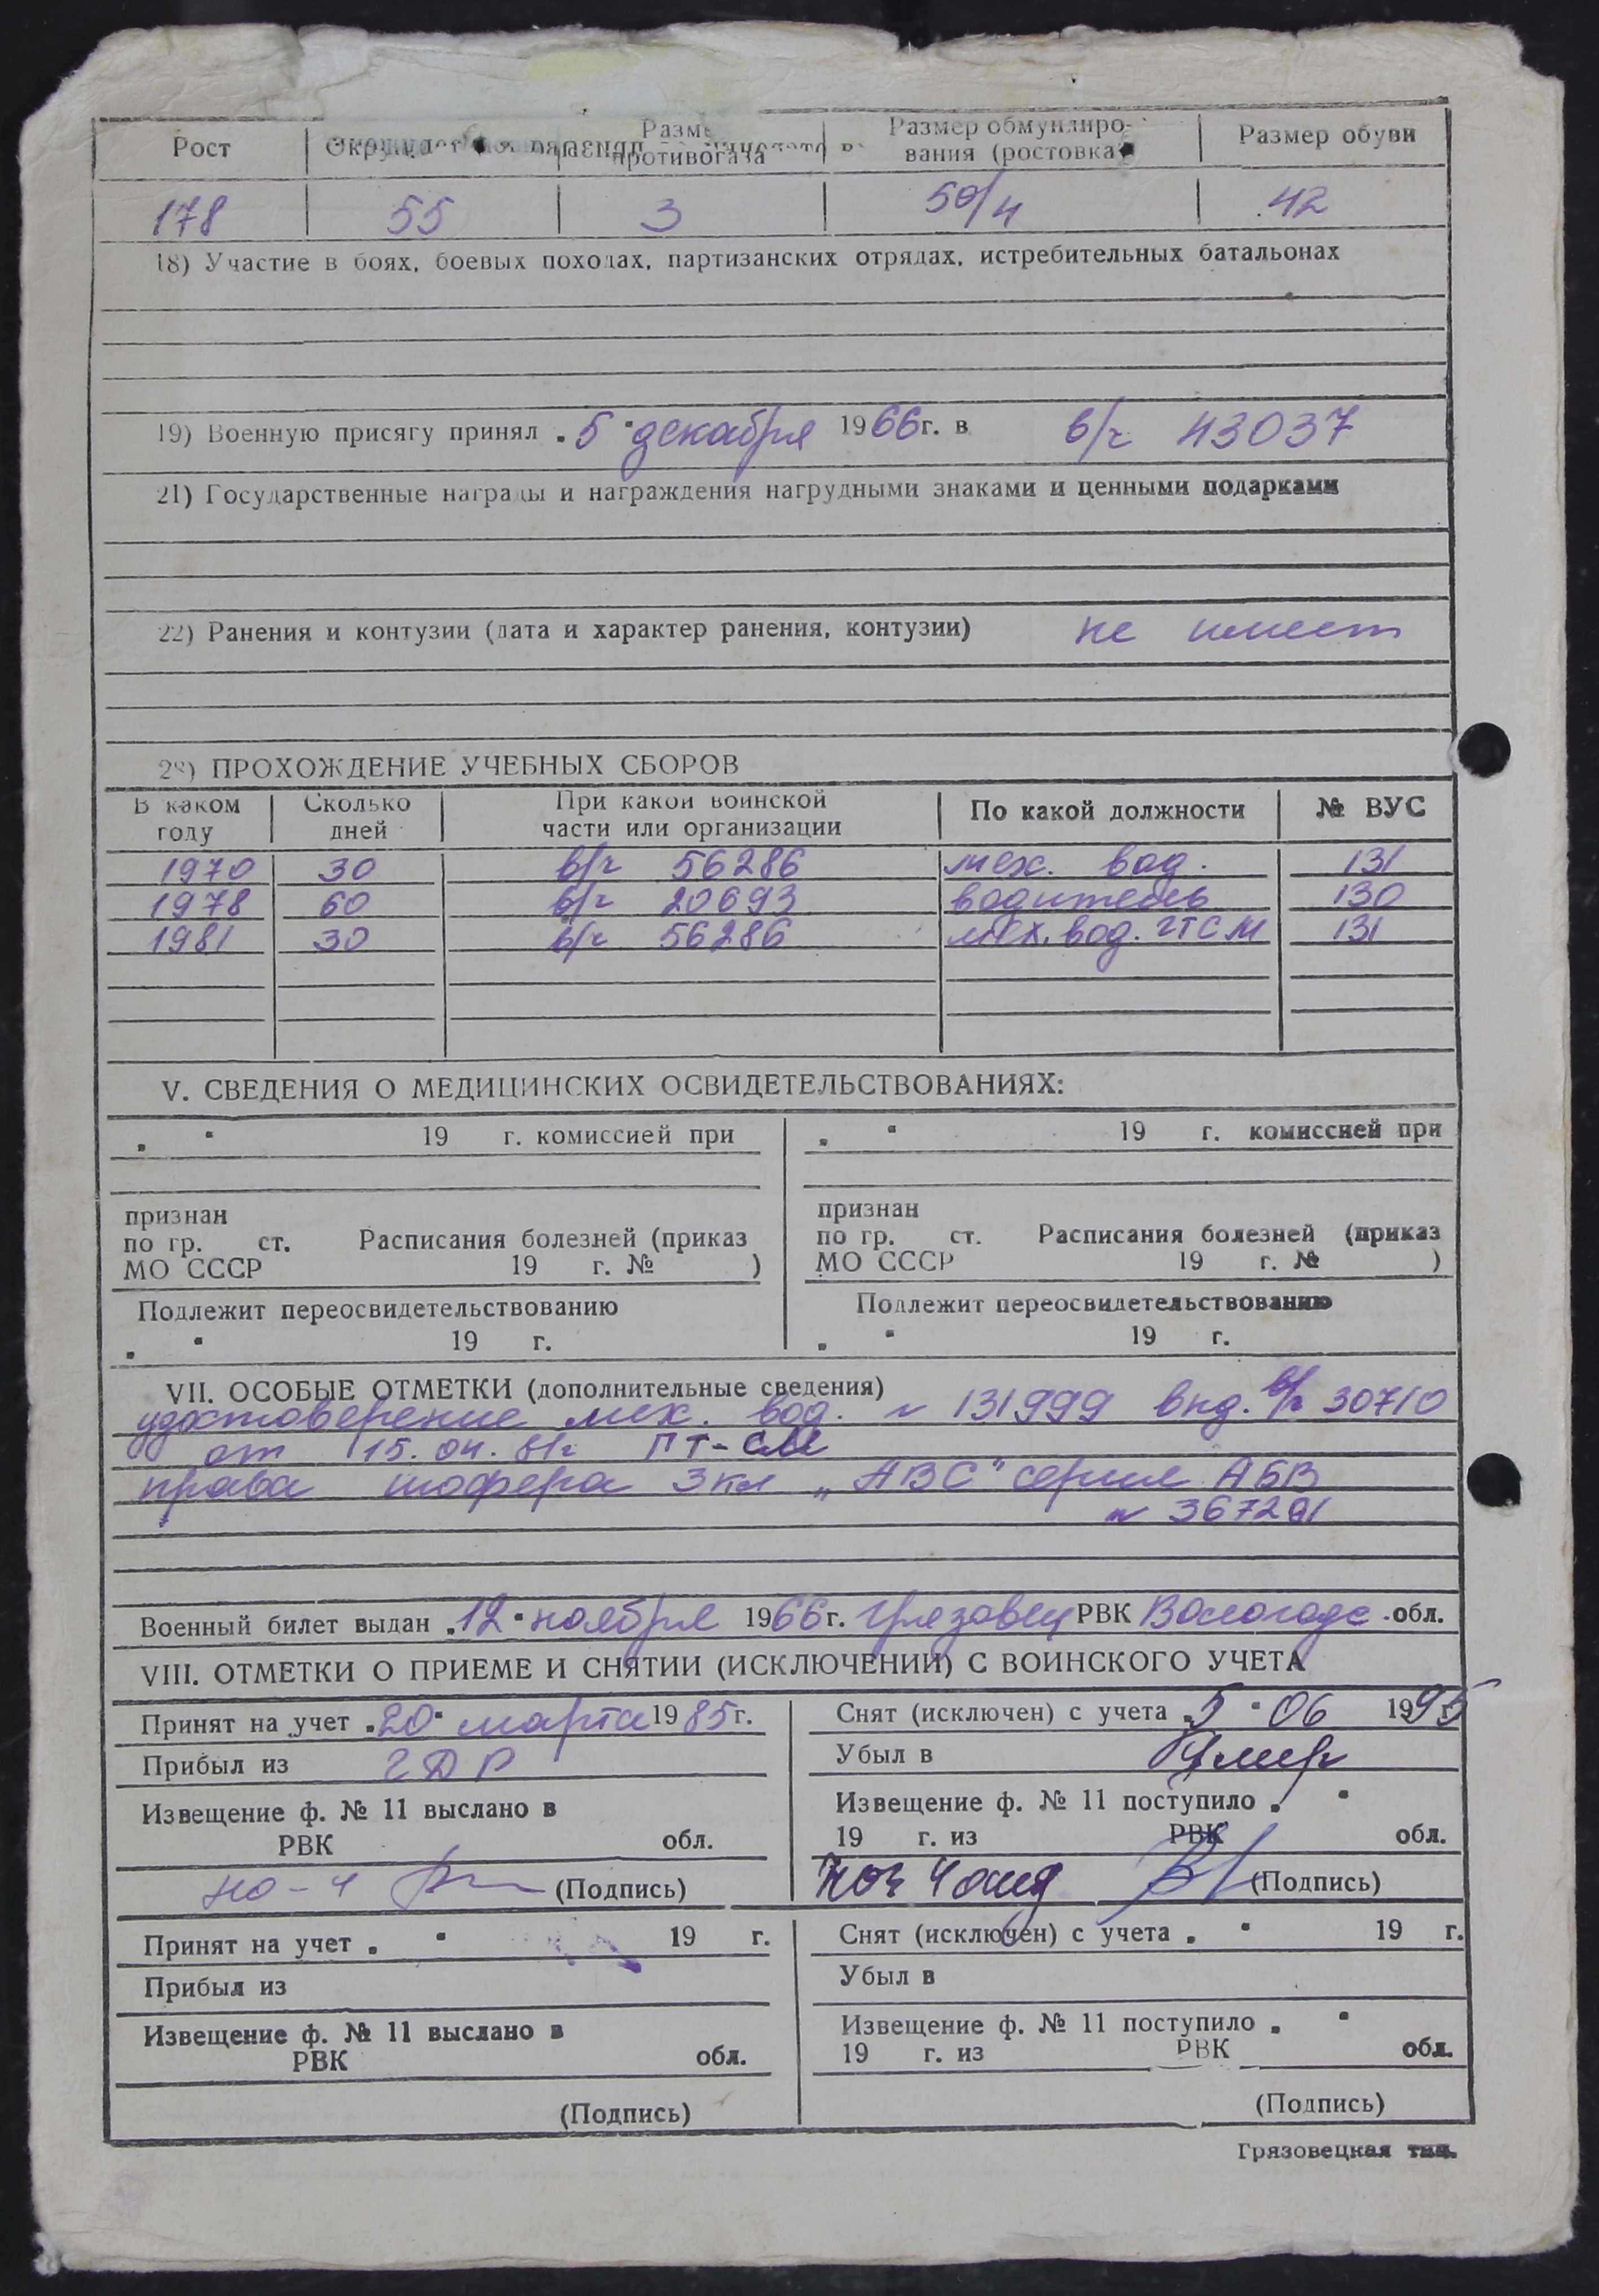 Рост Размер противогаза Размер обмундиро- вания (ростовка) Размер обуви
178 55 3 50/4 42
18) Участие в боях, боевых походах, партизанских отрядах, истребительных батальонах
19) Военную присягу принял „5" декабря 1966г. в в/ч 43037
21) Государственные награды и награждения нагрудными знаками и ценными подарками
22) Ранения и контузии (дата и характер ранения, контузии) не имеет
ПРОХОЖДЕНИЕ УЧЕБНЫХ СБОРОВ
В каком году Сколько дней При какой воинской части или организации По какой должности № ВУС
1970 30 в/ч 56286 мех. вод. 131
1978 60 в/ч 20693 водитель 130
1981 30 в/ч 56286 мех. вод. ГТСМ 131
V. СВЕДЕНИЯ О МЕДИЦИНСКИХ ОСВИДЕТЕЛЬСТВОВАНИЯХ:
„ " 19 г. комиссией при
признан
по гр. ст. Расписания болезней (приказ
МО СССР 19 г. № )
Подлежит переосвидетельствованию
„ " 19 г.
„ " 19 г. комиссией при
признан
по гр. ст. Расписания болезней (приказ
МО СССР 19 г. № )
Подлежит переосвидетельствованию
„ " 19 г.
VII. ОСОБЫЕ ОТМЕТКИ (дополнительные сведения)
удостоверение мех. вод. № 131999 выд. в/ч 30710
от 15.04.81г
права шофера 3кл „АВС" серия АБВ
№ 367291
Военный билет выдан „12" ноября 1966г. Грязовец РВК Вологодс. обл.
VIII. ОТМЕТКИ О ПРИЕМЕ И СНЯТИИ (ИСКЛЮЧЕНИИ) С ВОИНСКОГО УЧЕТА
Принят на учет „20" марта 1985г.
Прибыл из ГДР
Извещение ф. № 11 выслано в
РВК обл.
но-4 (Подпись)
Снят (исключен) с учета „5" 06 1995
Убыл в Умер
Извещение ф. № 11 поступило „ "
19 г. из РВК обл.
(Подпись)
Принят на учет „ " 19 г.
Прибыл из
Извещение ф. № 11 выслано в
РВК обл.
(Подпись)
Снят (исключен) с учета „ " 19 г.
Убыл в
Извещение ф. № 11 поступило „ "
19 г. из РВК обл.
(Подпись)
Грязовецкая тип.